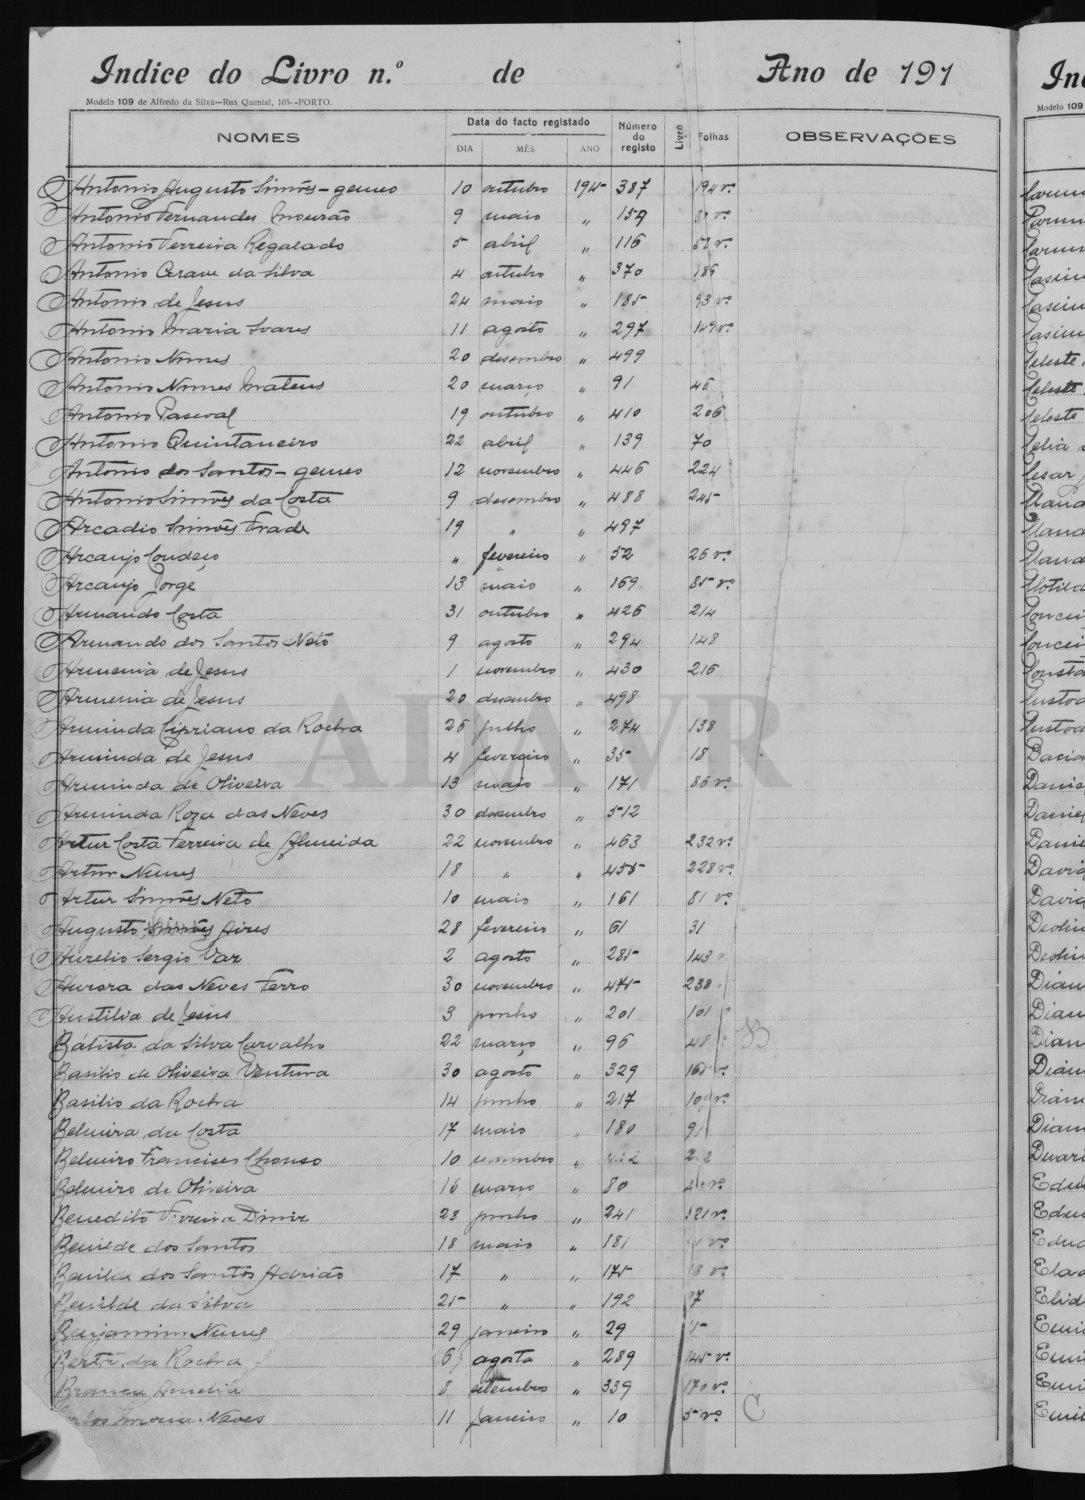 Indice do Livro n.º de Ano de 191
Modelo 109 de Alfredo da Silva—Rua Quental, 105--PORTO.
NOMES Data do facto registado DIA MÊS ANO Número do registo Livro Folhas OBSERVAÇÕES
Antonio Augusto Simões - gemeo 10 outubro 1915 387 194 v.º
Antonio Fernandes Mourão 9 maio " 159 v.º
Antonio Ferreira Regalado 5 abril " 116 58 v.º
Antonio da Silva 4 outubro " 370 186
Antonio de Jesus 24 maio " 185 93 v.º
Antonio Maria Soares 11 agosto " 297 149 v.º
Antonio Nunes 20 desembro " 499
Antonio Nunes Mateus 20 março " 91 46
Antonio Pascoal 19 outubro " 410 206
Antonio Quintaneiro 22 abril " 139 70
Antonio dos Santos - gemeo 12 novembro " 446 224
Antonio Simões da Costa 9 desembro " 488 245
Arcadio Simões Frade 19 " " 497
Arcanjo Condeço " fevereiro " 52 26 v.º
Arcanjo Jorge 13 maio " 169 85 v.º
Armando Costa 31 outubro " 426 214
Armando dos Santos Neto 9 agosto " 294 148
Armenia de Jesus 1 novembro " 430 216
Armenia de Jesus 20 desembro " 498
Arminda Cipriano da Rocha 26 julho " 274 138
Arminda de Jesus 4 fevereiro " 35 18
Arminda de Oliveira 13 maio " 171 86 v.º
Arminda Roza das Neves 30 desembro " 512
Artur Costa Ferreira de Almeida 22 novembro " 463 232 v.º
Artur Nunes 18 " " 455 228 v.º
Artur Simões Neto 10 maio " 161 81 v.º
Augusto Simões Aires 28 fevereiro " 61 31
Aurelio Sergio Vaz 2 agosto " 285 143 v
Aurora das Neves Ferro 30 novembro " 475 238
Austilia de Jesus 3 junho " 201 101
Batista da Silva Carvalho 22 março " 96 48 B
Basilio de Oliveira Ventura 30 agosto " 329 165 v.º
Basilio da Rocha 14 junho " 217 109 v.º
Belmira da Costa 17 maio " 180 91
Belmiro Francisco Chouso 10 novembro "
Belmiro de Oliveira 16 março " 80 v.º
Benedito Ferreira Diniz 28 junho " 241 121 v.º
Benilde dos Santos 18 maio " 181 v.º
Benilde dos Santos Adrião 17 " " 175 v.º
Benilde da Silva 25 " " 192 97
Benjamim Nunes 29 janeiro " 29 15
Berta da Rocha 6 agosto " 289 145 v.º
Branca Amelia 8 setembro " 339 170 v.º
Carlos Neves 11 janeiro " 10 5 v.º C
ADAVR